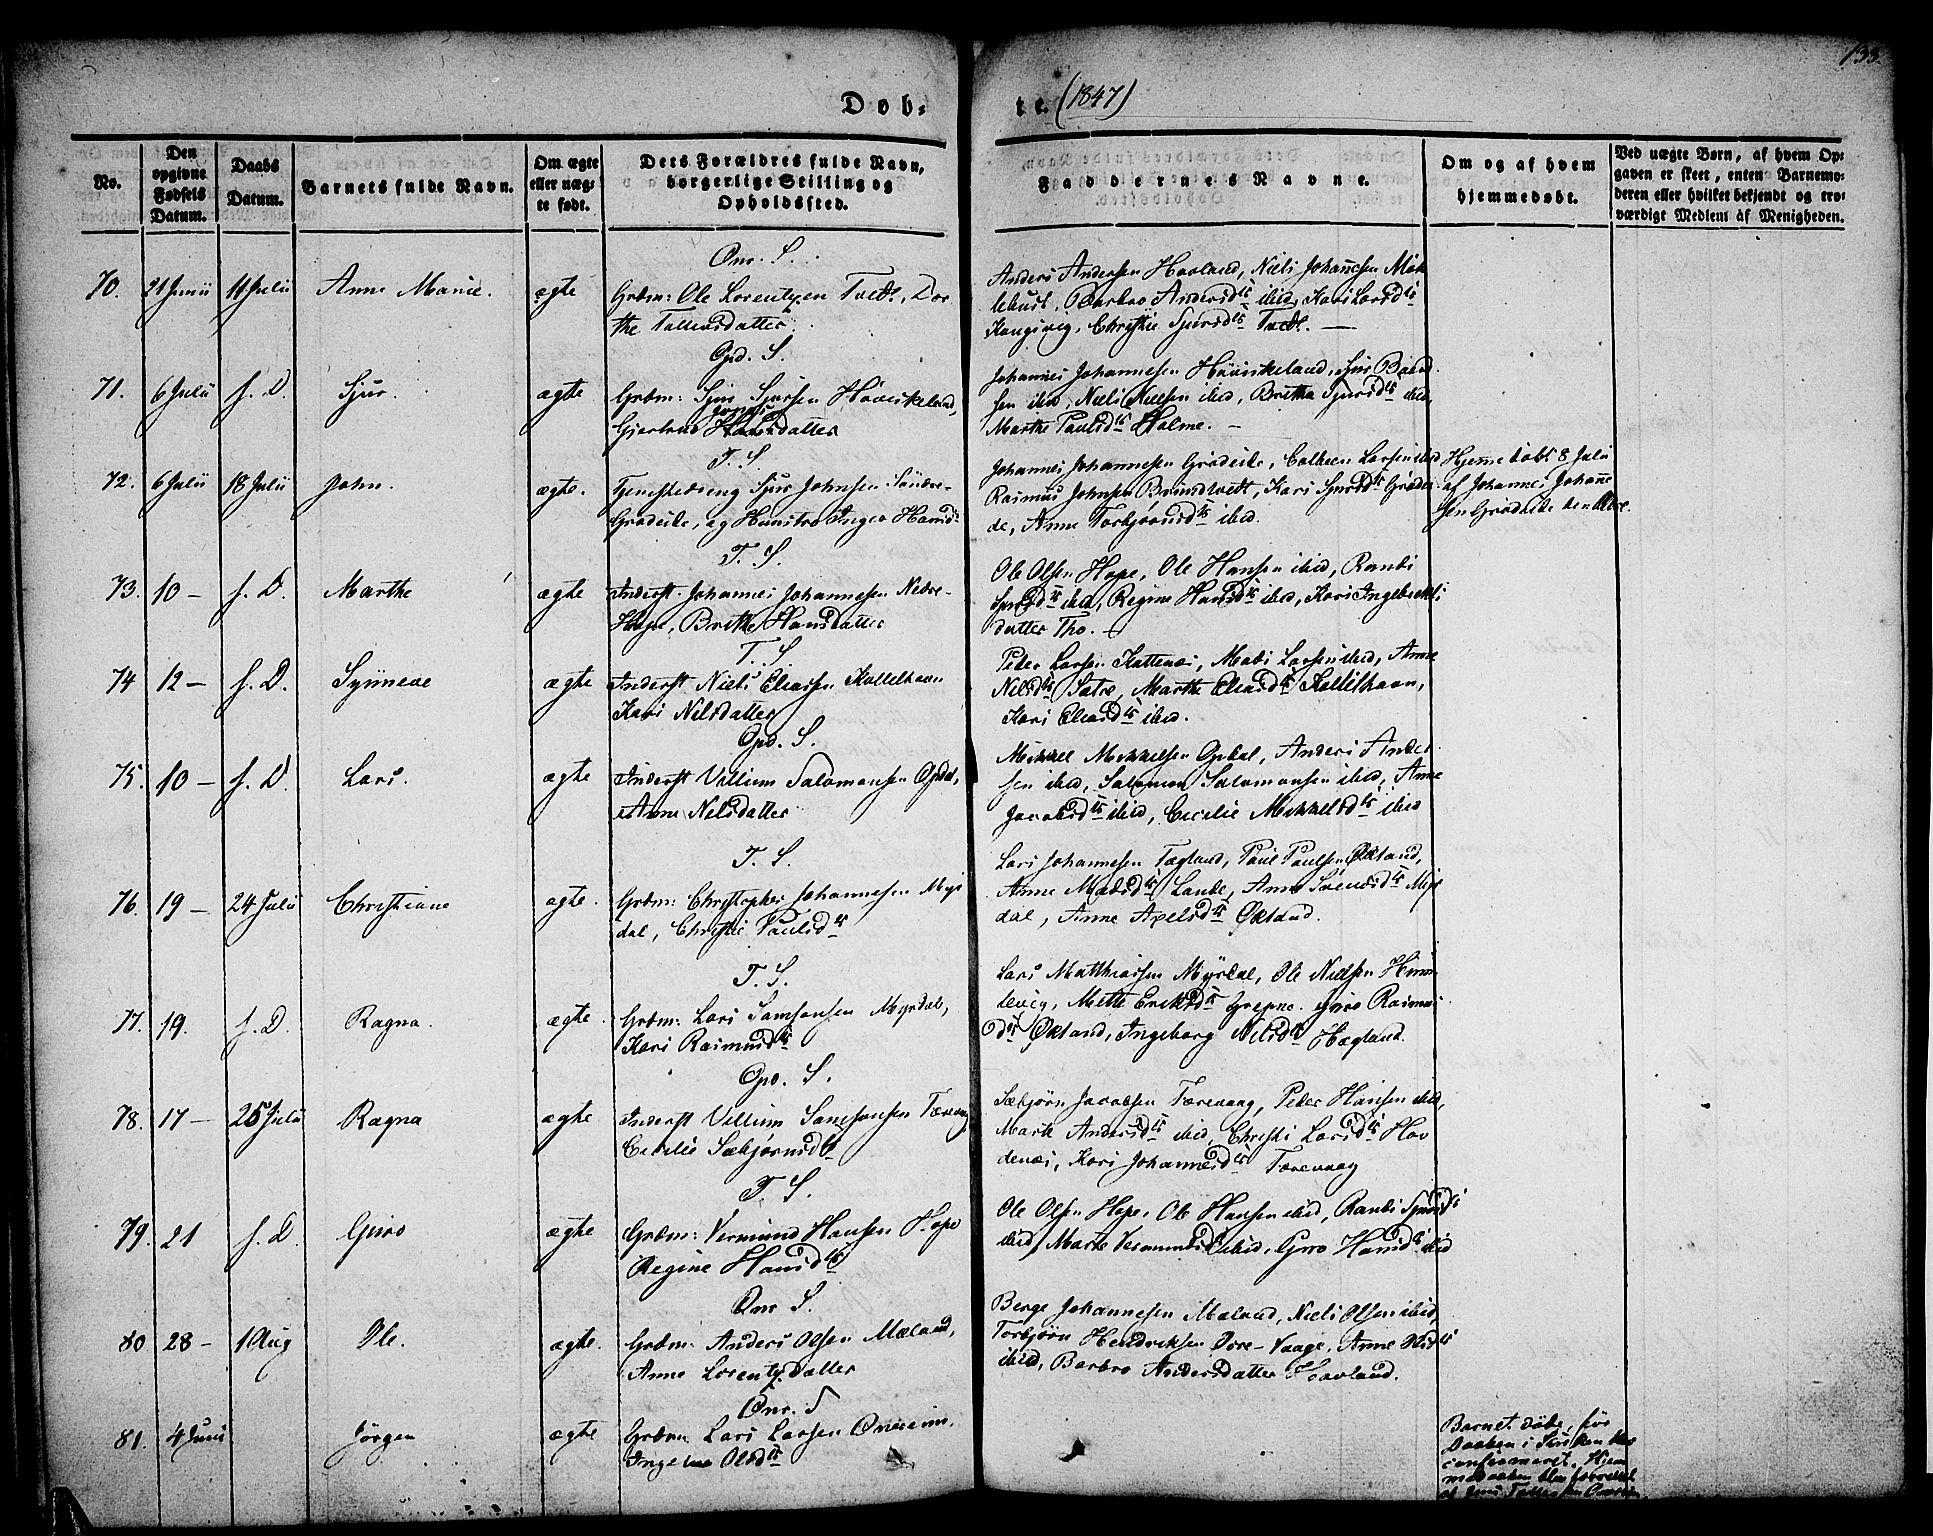 133.
Døb-
te. (1847)
No.
Den opgivne Fødsels Datum.
Daabs Datum.
Barnets fulde Navn.
Om ægte eller uægte født.
Dets Forældres fulde Navn, borgerlige Stilling og Opholdssted.
Faddernes Navne.
Om og af hvem hjemmedøbt.
Ved uægte Børn, af hvem Opgaven er skeet, enten Barnemoderen eller hvilket bekjendt og troværdigt Medlem af Menigheden.
Onr. S.
70. 21 Junii 11 Julii Anne Marie. ægte Grbm: Ole Lorentzen Tvedt, Dor
the Tollevsdatter
Anders Andersen Havland, Niels Johannesen Mok
lebust, Barbro Andersd<sup>tr</sup> ibid, Kari Larsd<sup>tr</sup>
Kongsvig, Christie Sjursd<sup>tr</sup> Tvedt. —
Opd. S.
71. 6 Julii s. D. Sjur. ægte Grbm: Sjur Sjursen Høviskeland,
Gjertrud datter
Johannes Johannesen Høviskeland, Sjur Baard
sen ibid, Niels Nielsen ibid, Britha Sjursd<sup>tr</sup> ibid,
Marthe Paulsd<sup>tr</sup> Holme. —
T. S.
72. 6 Julii 18 Julii John. ægte. Tjenestedreng Sjur Johnsen Søndre-
Grødeide, og Hustro Inger Hansd<sup>tr</sup>
Johannes Johannesen Grødeide, Larsen ibid
Rasmus Johnsen Brindtvedt, Kari Sjursd<sup>tr</sup> Grødei
de, Anne Torbjørnsd<sup>tr</sup> ibid.
Hjemmedøbt 8 Julii
af Johannes Johanne
sen Grødeide den ældre.
T. S.
73. 10 — s. D. Marthe ægte Inderst Johannes Johannesen Nedre-
Hope, Brithe Hansdatter
Ole Olsen Hope, Ole Hansen ibid, Randi
Sjursd<sup>tr</sup> ibid, Regine Hansd<sup>tr</sup> ibid, Kari Ingebrikts
datter Tho. —
T. S
74 12 — s. D. Synneve ægte Inderst Niels Eliassen Kollelhavn
Kari Nilsdatter
Peder Larsen Kattenæs, Mads Larsen ibid, Anne
Nilsd<sup>tr</sup> Sætre, Marthe Eliasd<sup>tr</sup> Kollelhavn,
Kari Eliasd<sup>tr</sup> ibid.
Opd. S.
75. 10 — s. D. Lars. ægte Inderst Villum Salomonsen Opdal,
Anne Nilsdatter
Mikkel Mikkelsen Opdal, Anders Ander
sen ibid, Salomon Salomonsen ibid, Anne
Jacobsd<sup>tr</sup> ibid, Cecilie Mikkelsd<sup>tr</sup> ibid
T. S.
76. 19 — 24 Julii Christiane ægte. Grbm: Christopher Johannesen Myr
dal, Christie Paulsd<sup>tr</sup>
Lars Johannesen Tægland, Paul Paulsen Øxland,
Anne Madsd<sup>tr</sup> Lande, Anne Svendsd<sup>tr</sup> Myr
dal, Anne Axelsd<sup>tr</sup> Øxland.
T. S.
77. 19. s. D. Ragna. ægte. Grbm: Lars Samsonsen Myrdal,
Kari Rasmusd<sup>tr</sup>
Lars Matthiassen Myrdal, Ole Nielsen
Mette Eriksd<sup>tr</sup> Gjøro Rasmus
d<sup>tr</sup> Øxland, Ingeborg Nilsd<sup>tr</sup> Hægland.
Opd. S.
78. 17 — 25 Julii Ragna ægte Inderst Villum Samsonsen Tærevaag
Cecilie Sæbjørnsd<sup>tr</sup>
Sæbjørn Jacobsen Tærevaag, Peder Hansen ibid,
Marte Andersd<sup>tr</sup> ibid, Christi Larsd<sup>tr</sup> Hov
denæs, Kari Johannesd<sup>tr</sup> Tærevaag
T. S.
79. 21 s. D. Gjøro ægte Grbm: Vermund Hansen Hope
Regine Hansd<sup>tr</sup>
Ole Olsen Hope, Ole Hansen ibid, Randi Sjursd<sup>tr</sup>
ibid, Marte Vermundsd<sup>tr</sup> ibid, Gjøro Hansd<sup>tr</sup> ibid
Onr S.
80 28 — 1 Aug Ole. ægte. Grbm: Anders Olsen Mæland,
Anne Lorentzdatter
Berge Johannesen Mæland, Niels Olsen ibid,
Torbjørn Hendriksen Øvre-Vaage, Anne
ibid, Barbro Andersdatter Havland.
Onr. S
81. 4 Juni Jørgen ægte Grbm: Lars Larsen Onereim.
Olsd<sup>tr</sup>
Barnet døde, før
Daaben i Kirken blev
confirmeret. Hjem
medaaben blev forrettet
af